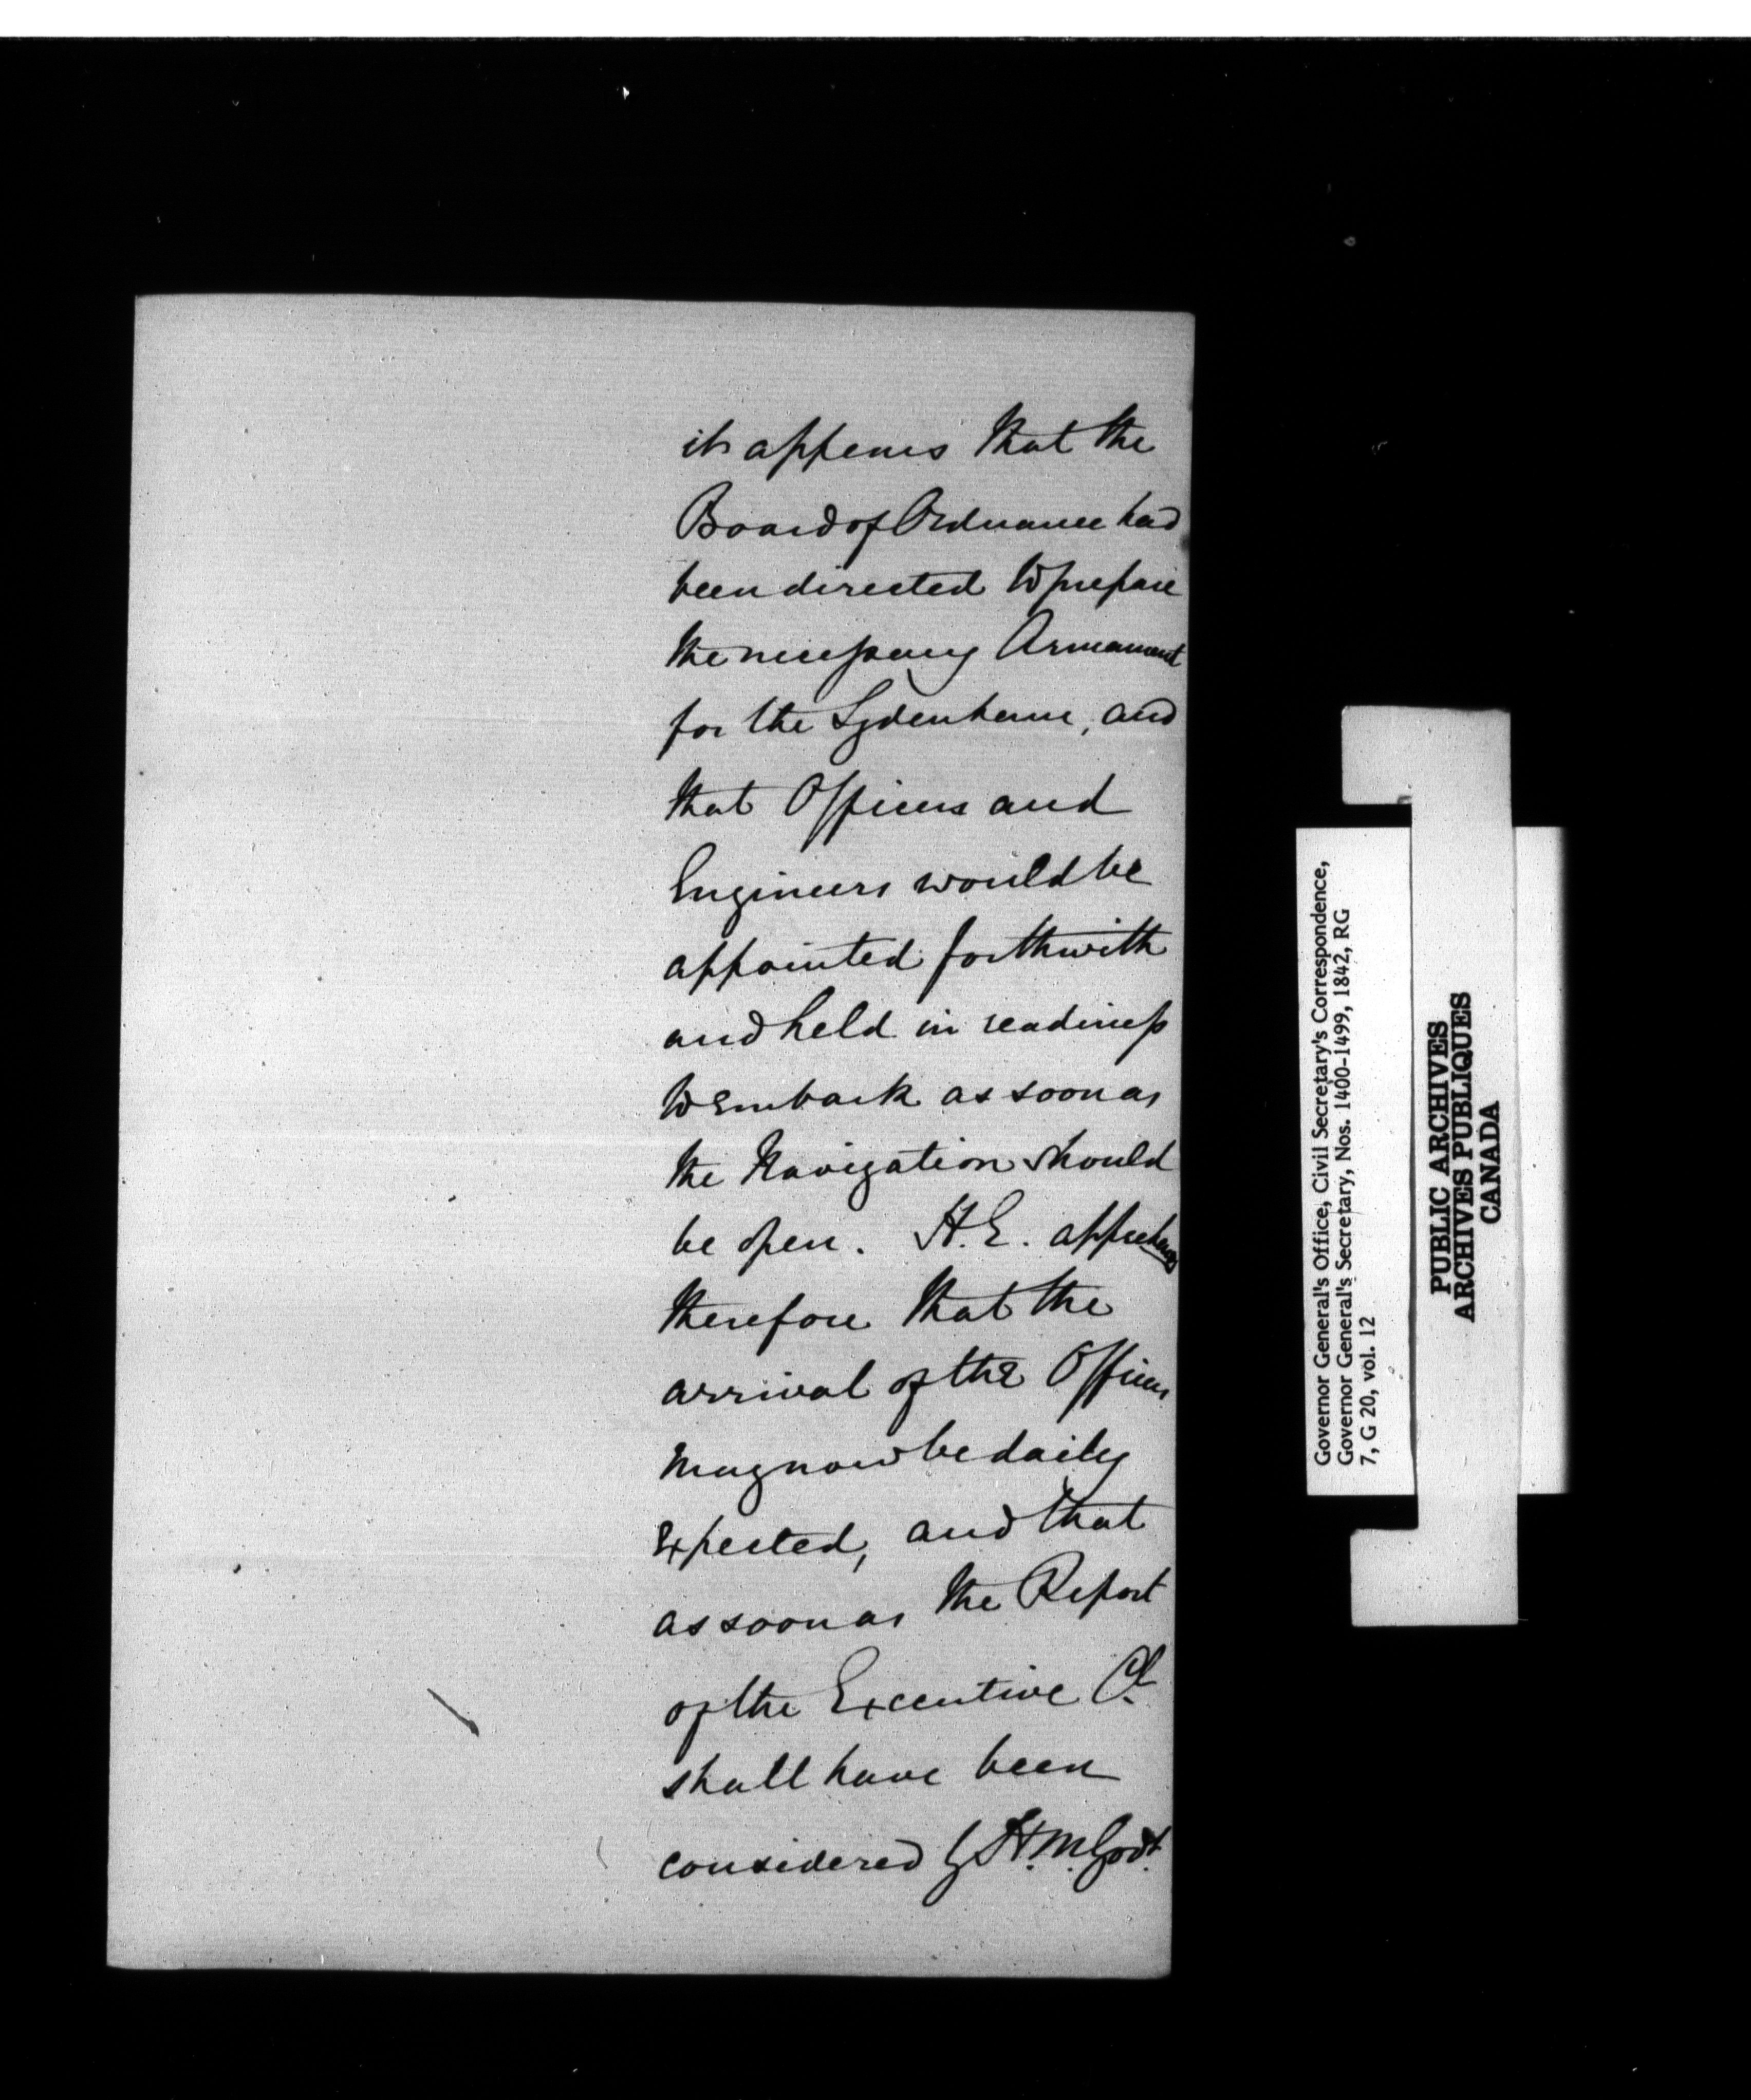 it appears that the
Board of Ordnance had
been directed to prepare
the necessary Armament
for the Sydenham, and
that Officers and
Engineers would be
appointed forthwith
and held in readiness
to Embark as soon as
the Navigation should
be open. H.E. apprehends
therefore that the
arrival of the Officers
may now be daily
Expected, and that
as soon as the Report
of the Executive Cl
shall have been
considered by H.M. Govt.
Governor General's Office, Civil Secretary's Correspondence,
Governor General's Secretary, Nos. 1400-1499, 1842, RG
7, G 20, vol. 12
PUBLIC ARCHIVES
ARCHIVES PUBLIQUES
CANADA